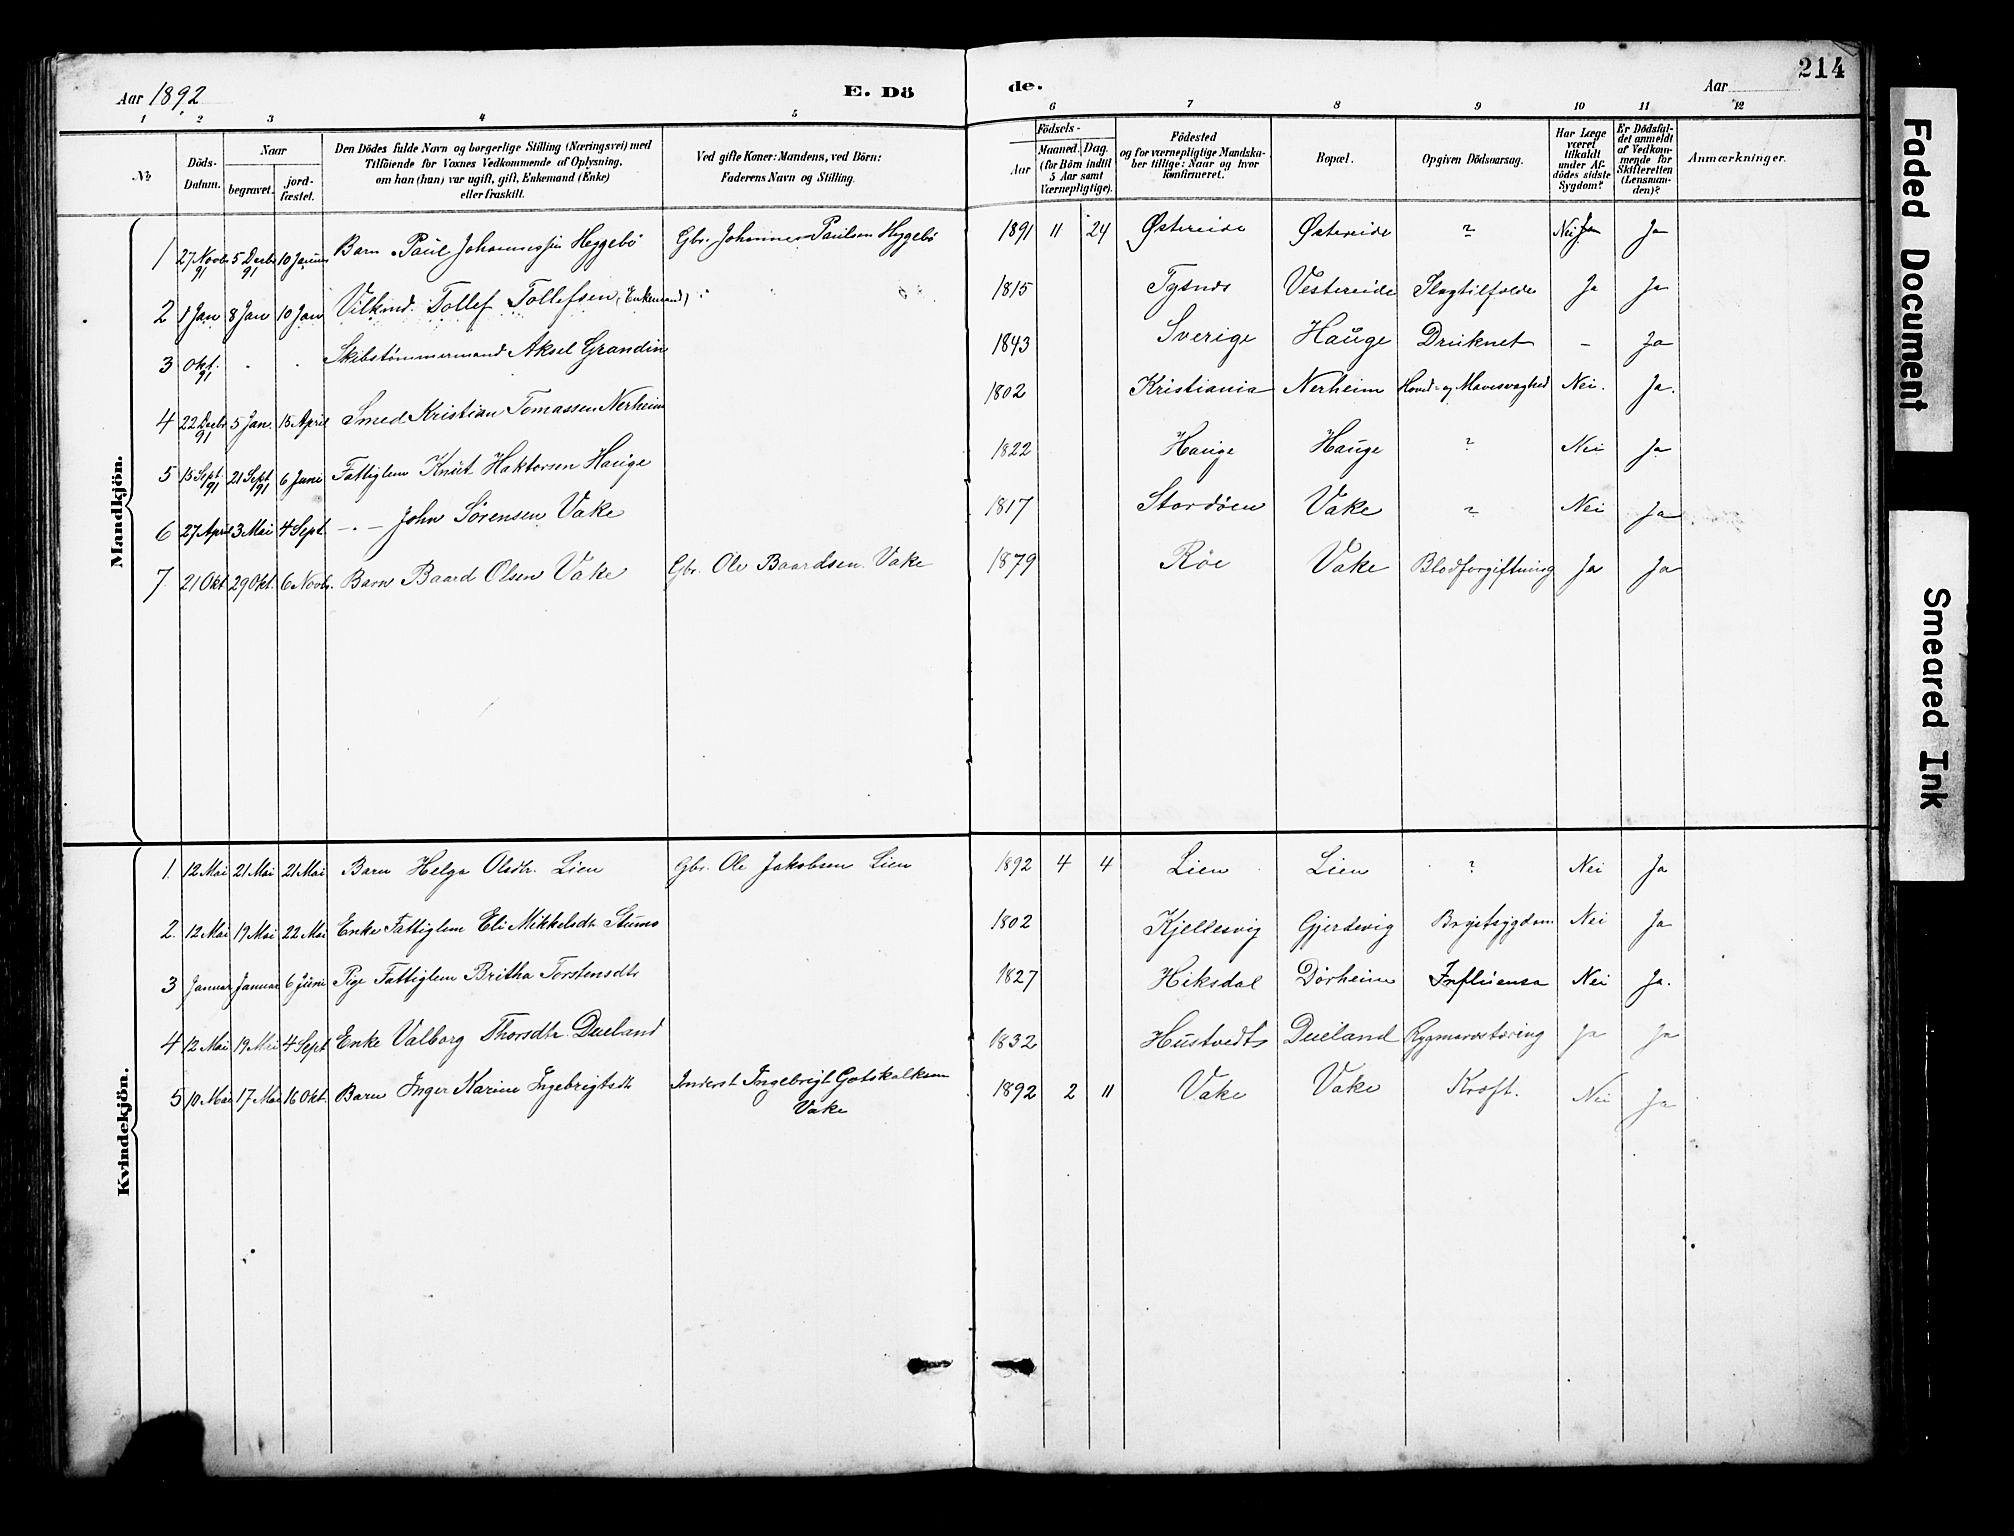 Aar 1892
E. Dö
de.
Aar
214
1 2 3 4 5
6 7 8 9 10 11 12
№
Döds-Datum.
Naar
begravet.
jord-fæstet.
Den Dödes fulde Navn og borgerlige Stilling (Næringsvei) med
Tilföiende for Voxnes Vedkommende af Oplysning,
om han (hun) var ugift, gift, Enkemand (Enke)
eller fraskilt.
Ved gifte Koner: Mandens, ved Börn:
Faderens Navn og Stilling.
Födsels-
Aar
Maaned. Dag.
(for Börn indtil
5 Aar samt
Værnepligtige).
Födested
og for værnepligtige Mandska-
ber tillige: Naar og hvor
konfirmeret.
Bopæl.
Opgiven Dödsaarsag.
Har Læge
været
tilkaldt
under Af-
dödes sidste
Sygdom?
Er Dödsfal-
det anmeldt
af Vedkom-
mende for
Skifteretten
(Lensman-
den)?
Anmærkninger.
Mandkjön.
1 27 Novbr 91 5 Decbr 91 10 Januar Barn Paul Johannessen Heggebö Gbr. Johannes Paulsen Heggebö 1891 11 24 Østereide Østereide ? Nei Ja Ja
2 1 Jan 8 Jan 10 Jan Vilkind. Tollef Tollefsen (Enkemand) 1815 Tysnes Vestereide Slagtilfælde Ja Ja
3 Okt. 91 . . Skibstömmermand Aksel Grandin 1843 Sverige Hauge Druknet – Ja
4 22 Decbr 91 5 Jan. 15 April Smed Kristian Tomassen Nerheim 1802 Kristiania Nerheim Hoved- og Mavesvaghed Nei. Ja.
5 15 Sept. 91 21 Sept 91 6 Juni Fattiglem Knut Haktorsen Hauge 1822 Hauge Hauge ? Nei Ja
6 27 April 3 Mai 4 Sept. –"– John Sørensen Vake 1817 Stordöen Vake ? Nei Ja
7. 21 Okt 29 Okt. 6 Novbr. Barn Baard Olsen Vake Gbr. Ole Baardsen Vake 1879 Røe Vake Blodforgiftning Ja Ja
Kvindekjön.
1. 12 Mai 21 Mai 21 Mai Barn Helga Olsdtr. Lien Gbr. Ole Jakobsen Lien 1892 4 4 Lien Lien ? Nei Ja
2. 12 Mai 19 Mai 22 Mai Enke Fattiglem Eli Mikkelsdtr Stumo 1802 Kjellesvig Gjerdevig Brystsygdom Nei Ja
3 Januar Januar 6 Juni Pige Fattiglem Britha Torstensdtr 1827 Hiksdal Dörheim Influensa Nei Ja.
4 12 Mai 19 Mai 4 Sept Enke Valborg Thorsdtr. Dueland 1832 Hustvedt Dueland Rygmarvstæring Ja Ja
5 10 Mai 17 Mai 16 Okt. Barn Inger Marine Ingebrigtsdtr Inderst Ingebrigt Gotskalksen 1892 2 11 Vake Vake Kroft. Nei Ja
Vake
Faded Document
Smeared Ink